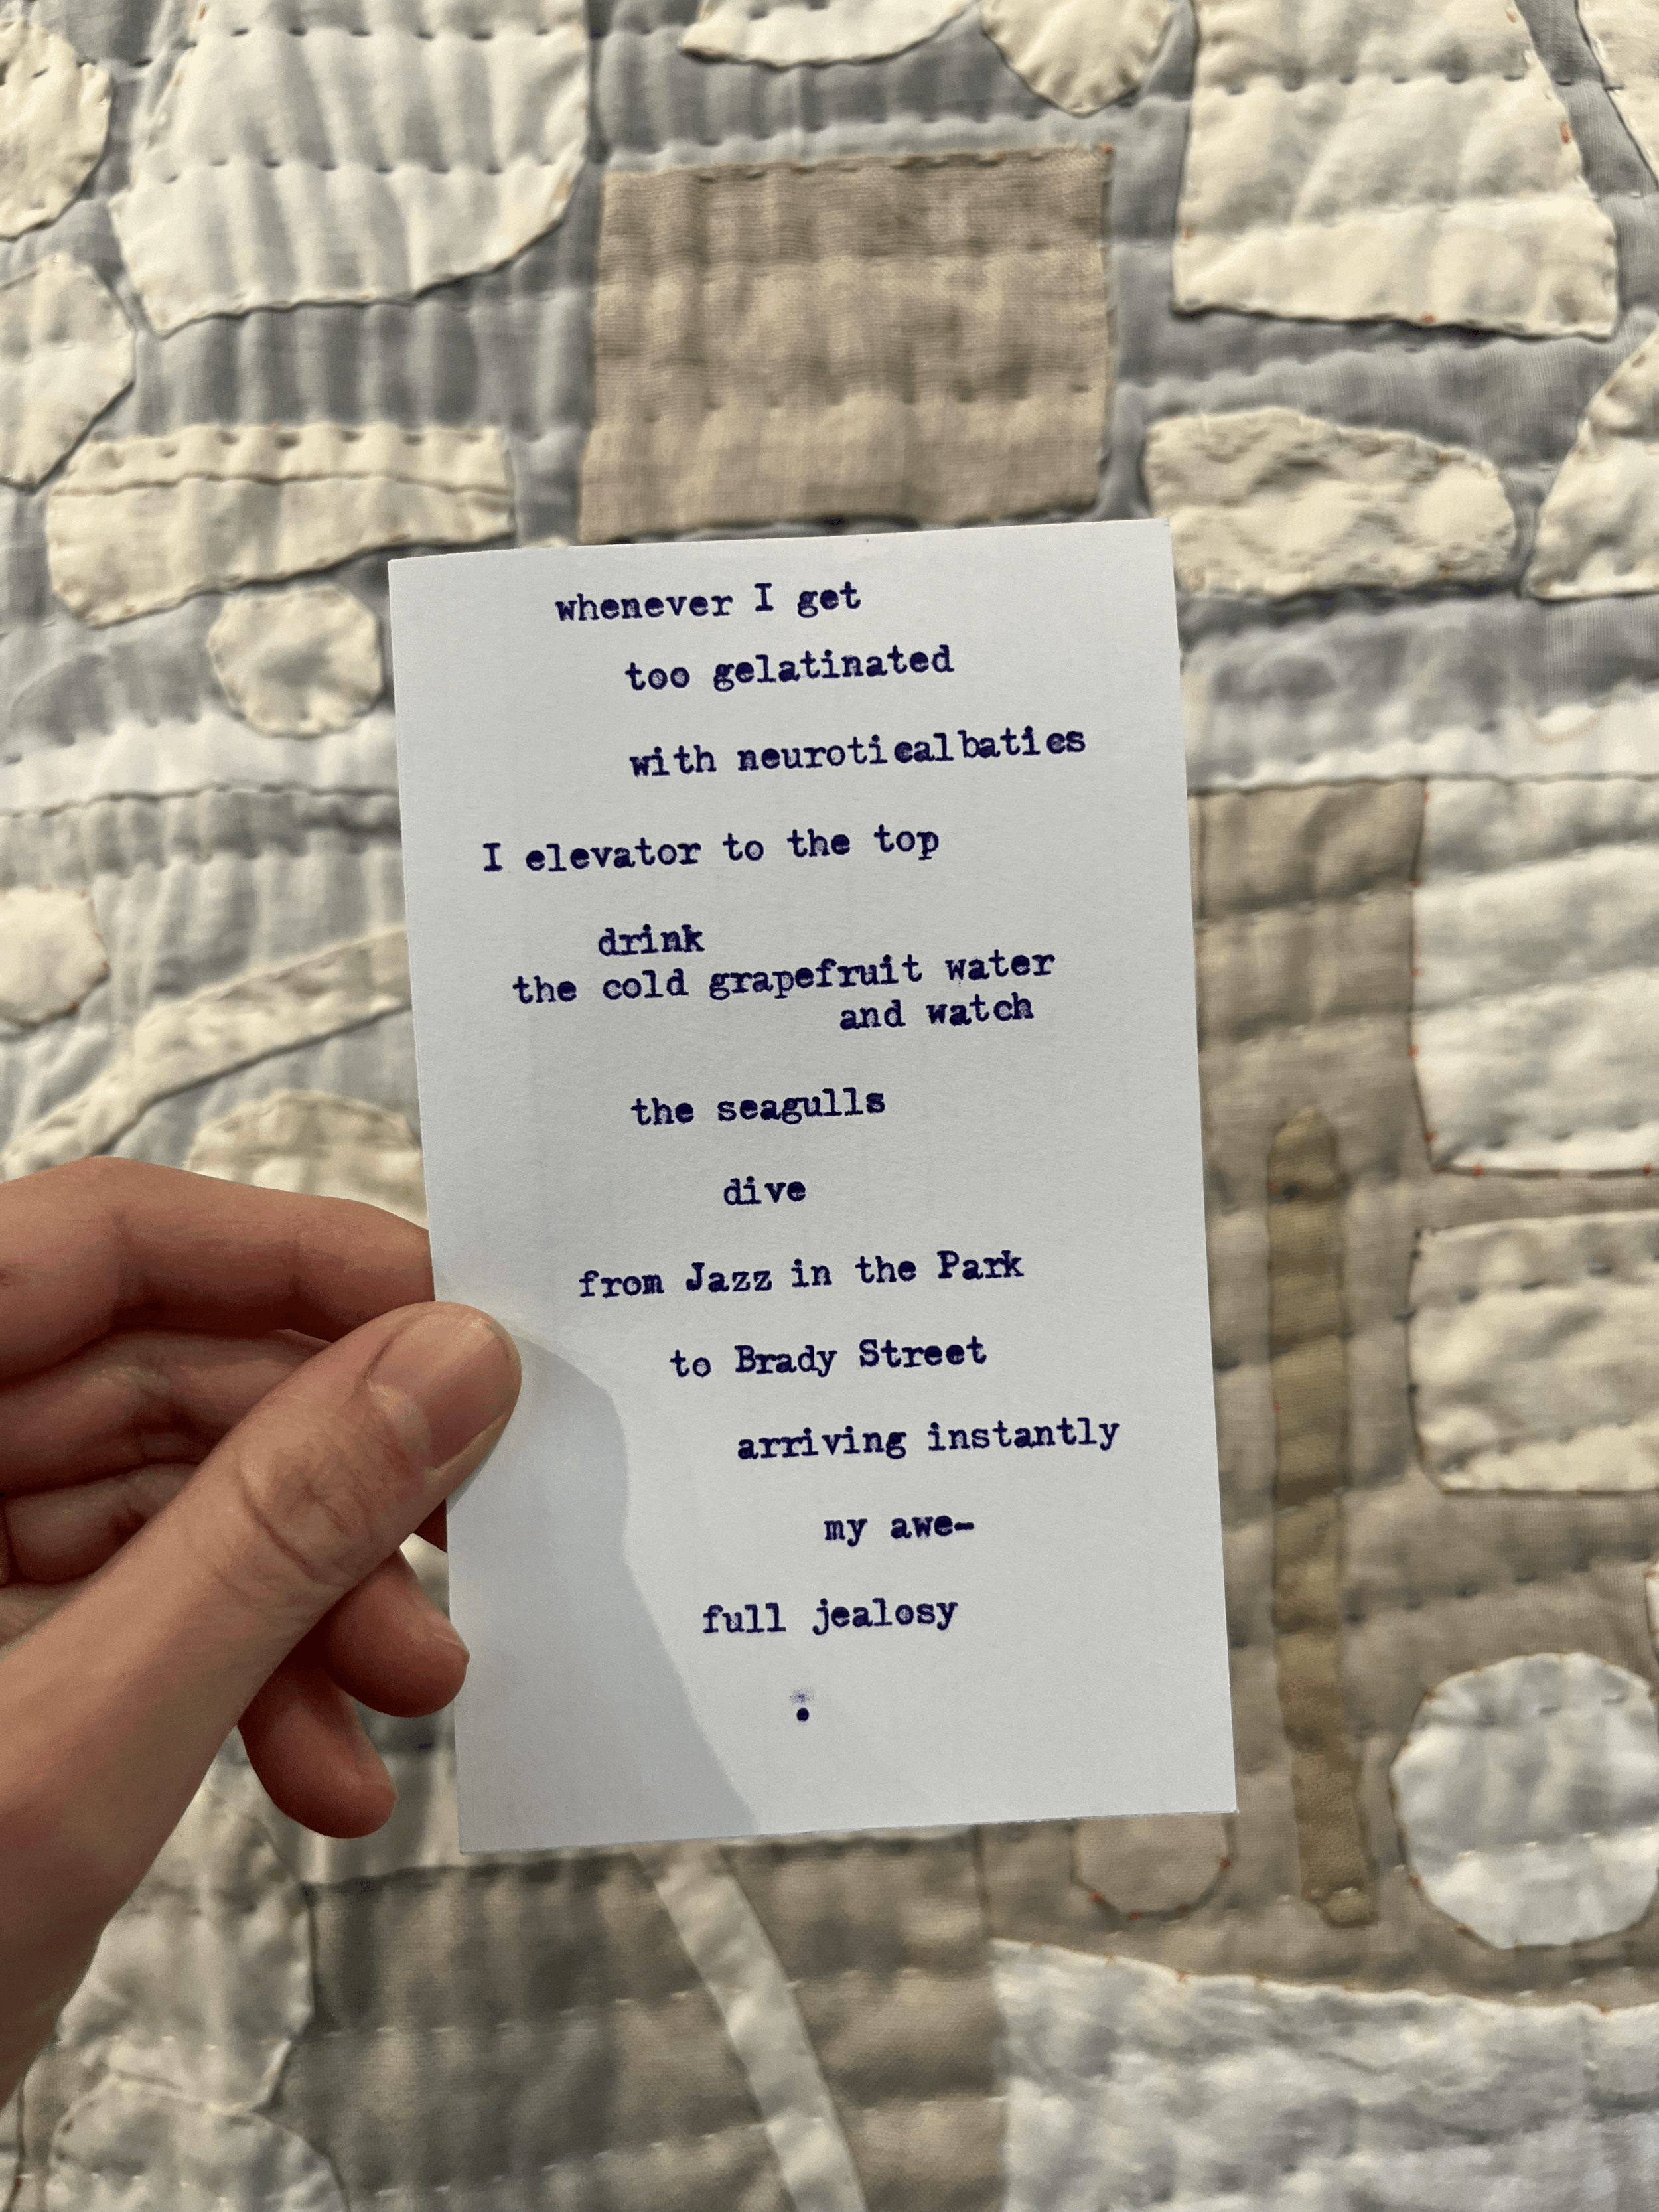 whenever I get
too gelatinated
with neuroticalbaties
I elevator to the top
drink
the cold grapefruit water
and watch
the seagulls
dive
from Jazz in the Park
to Brady Street
arriving instantly
my awe-
full jealosy
.